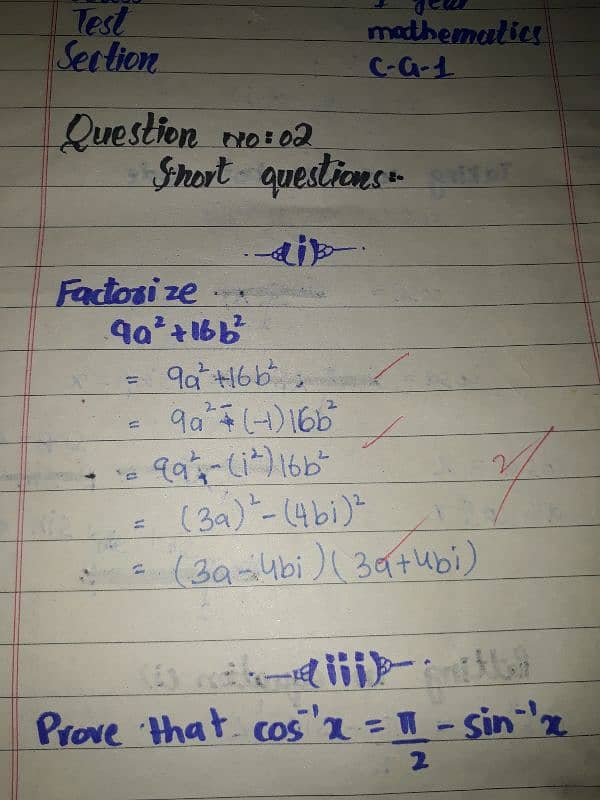 Test
mathematics
Section
C-G-1
Question no: 02
Short questions:-
(i)
Factorize
9a²+16b²
= 9a²+16b²
= 9a²-(-1)16b²
= 9a²-(i²)16b²
= (3a)²-(4bi)²
= (3a-4bi)(3a+4bi)
2/
(iii)
Prove that cos⁻¹x = π/2 - sin⁻¹x